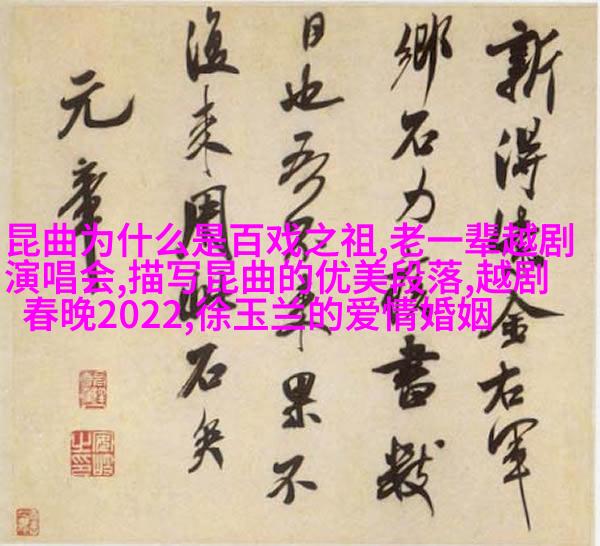 昆曲为什么是百戏之祖,老一辈越剧
演唱会,描写昆曲的优美段落,越剧
春晚2022,徐玉兰的爱情婚姻
新得金右軍
鄉石力書數
日也吾果不
復來用此石矣
元章